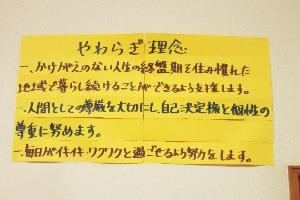 やわらぎ理念
一、かけがえのない人生の終盤期を住み慣れた
地域で暮らし続けることができるよう支援します。
一、人間としての尊厳を大切にし、自己決定権と個性の
尊重に努めます。
一、毎日がイキイキワクワクと過ごせるよう努力をします。